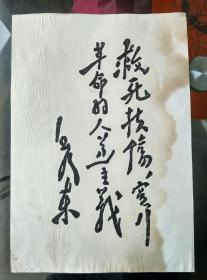 救死扶傷，实行
革命的人道主義
毛泽東